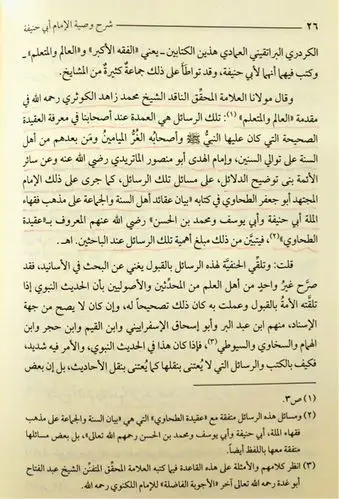 ٢٦ شرح وصية الإمام أبي حنيفة
الكردري البراتقيني العمادي هذين الكتابين ـ يعني «الفقه الأكبر» و«العالم والمتعلم» ـ
وكتب فيهما أنهما لأبي حنيفة، وقد تواطأ على ذلك جماعةٌ كثيرةٌ من المشايخ.
وقال مولانا العلامة المحقّق الناقد الشيخ محمد زاهد الكوثري رحمه الله في
مقدمة «العالم والمتعلم»(١): تلك الرسائل هي العمدة عند أصحابنا في معرفة العقيدة
الصحيحة التي كان عليها النبيُّ ﷺ وأصحابُه الغُرُّ الميامينُ ومَن بعدهم من أهل
السنة على توالي السنين، وإمام الهدى أبو منصور الماتريدي رضي الله عنه وعن سائر
الأئمة بنى توضيح الدلائل، على مسائل تلك الرسائل، كما جرى على ذلك الإمام
المجتهد أبو جعفر الطحاوي في كتابه «بيان عقائد أهل السنة والجماعة على مذهب فقهاء
الملة أبي حنيفة وأبي يوسف ومحمد بن الحسن» رضي الله عنهم المعروف بـ«عقيدة
الطحاوي»(٢)، فيتبيّن من ذلك مبلغ أهمية تلك الرسائل عند الباحثين. اهـ.
قلت: وتلقّي الحنفيّة لهذه الرسائل بالقبول يغني عن البحث في الأسانيد، فقد
صرَّح غيرُ واحدٍ من أهل العلم من المحدِّثين والأصوليين بأن الحديث النبوي إذا
تلقّته الأمةُ بالقبول وعملت به كان ذلك تصحيحاً له، وإن كان لا يصح من جهة
الإسناد، منهم ابن عبد البر وأبو إسحاق الإسفراييني وابن القيم وابن حجر وابن
الهمام والسخاوي والسيوطي(٣)، فإذا كان هذا في الحديث النبوي، والأمر فيه شديد،
فكيف بالكتب والرسائل التي لا يُعتنى بنقلها كما يُعتنى بنقل الأحاديث، بل إن بعض
(١) ص٣.
(٢) ومسائل هذه الرسائل متفقة مع «عقيدة الطحاوي» التي هي «بيان السنة والجماعة على مذهب
فقهاء الملة، أبي حنيفة وأبي يوسف ومحمد بن الحسن رحمهم الله تعالى»، بل بعض مسائلها
متفقة معها باللفظ أيضاً.
(٣) انظر كلامهم والأمثلة على هذه القاعدة فيما كتبه العلامة المحقق المتفنّن الشيخ عبد الفتاح
أبو غدة رحمه الله تعالى آخر «الأجوبة الفاضلة» للإمام اللكنوي رحمه الله.